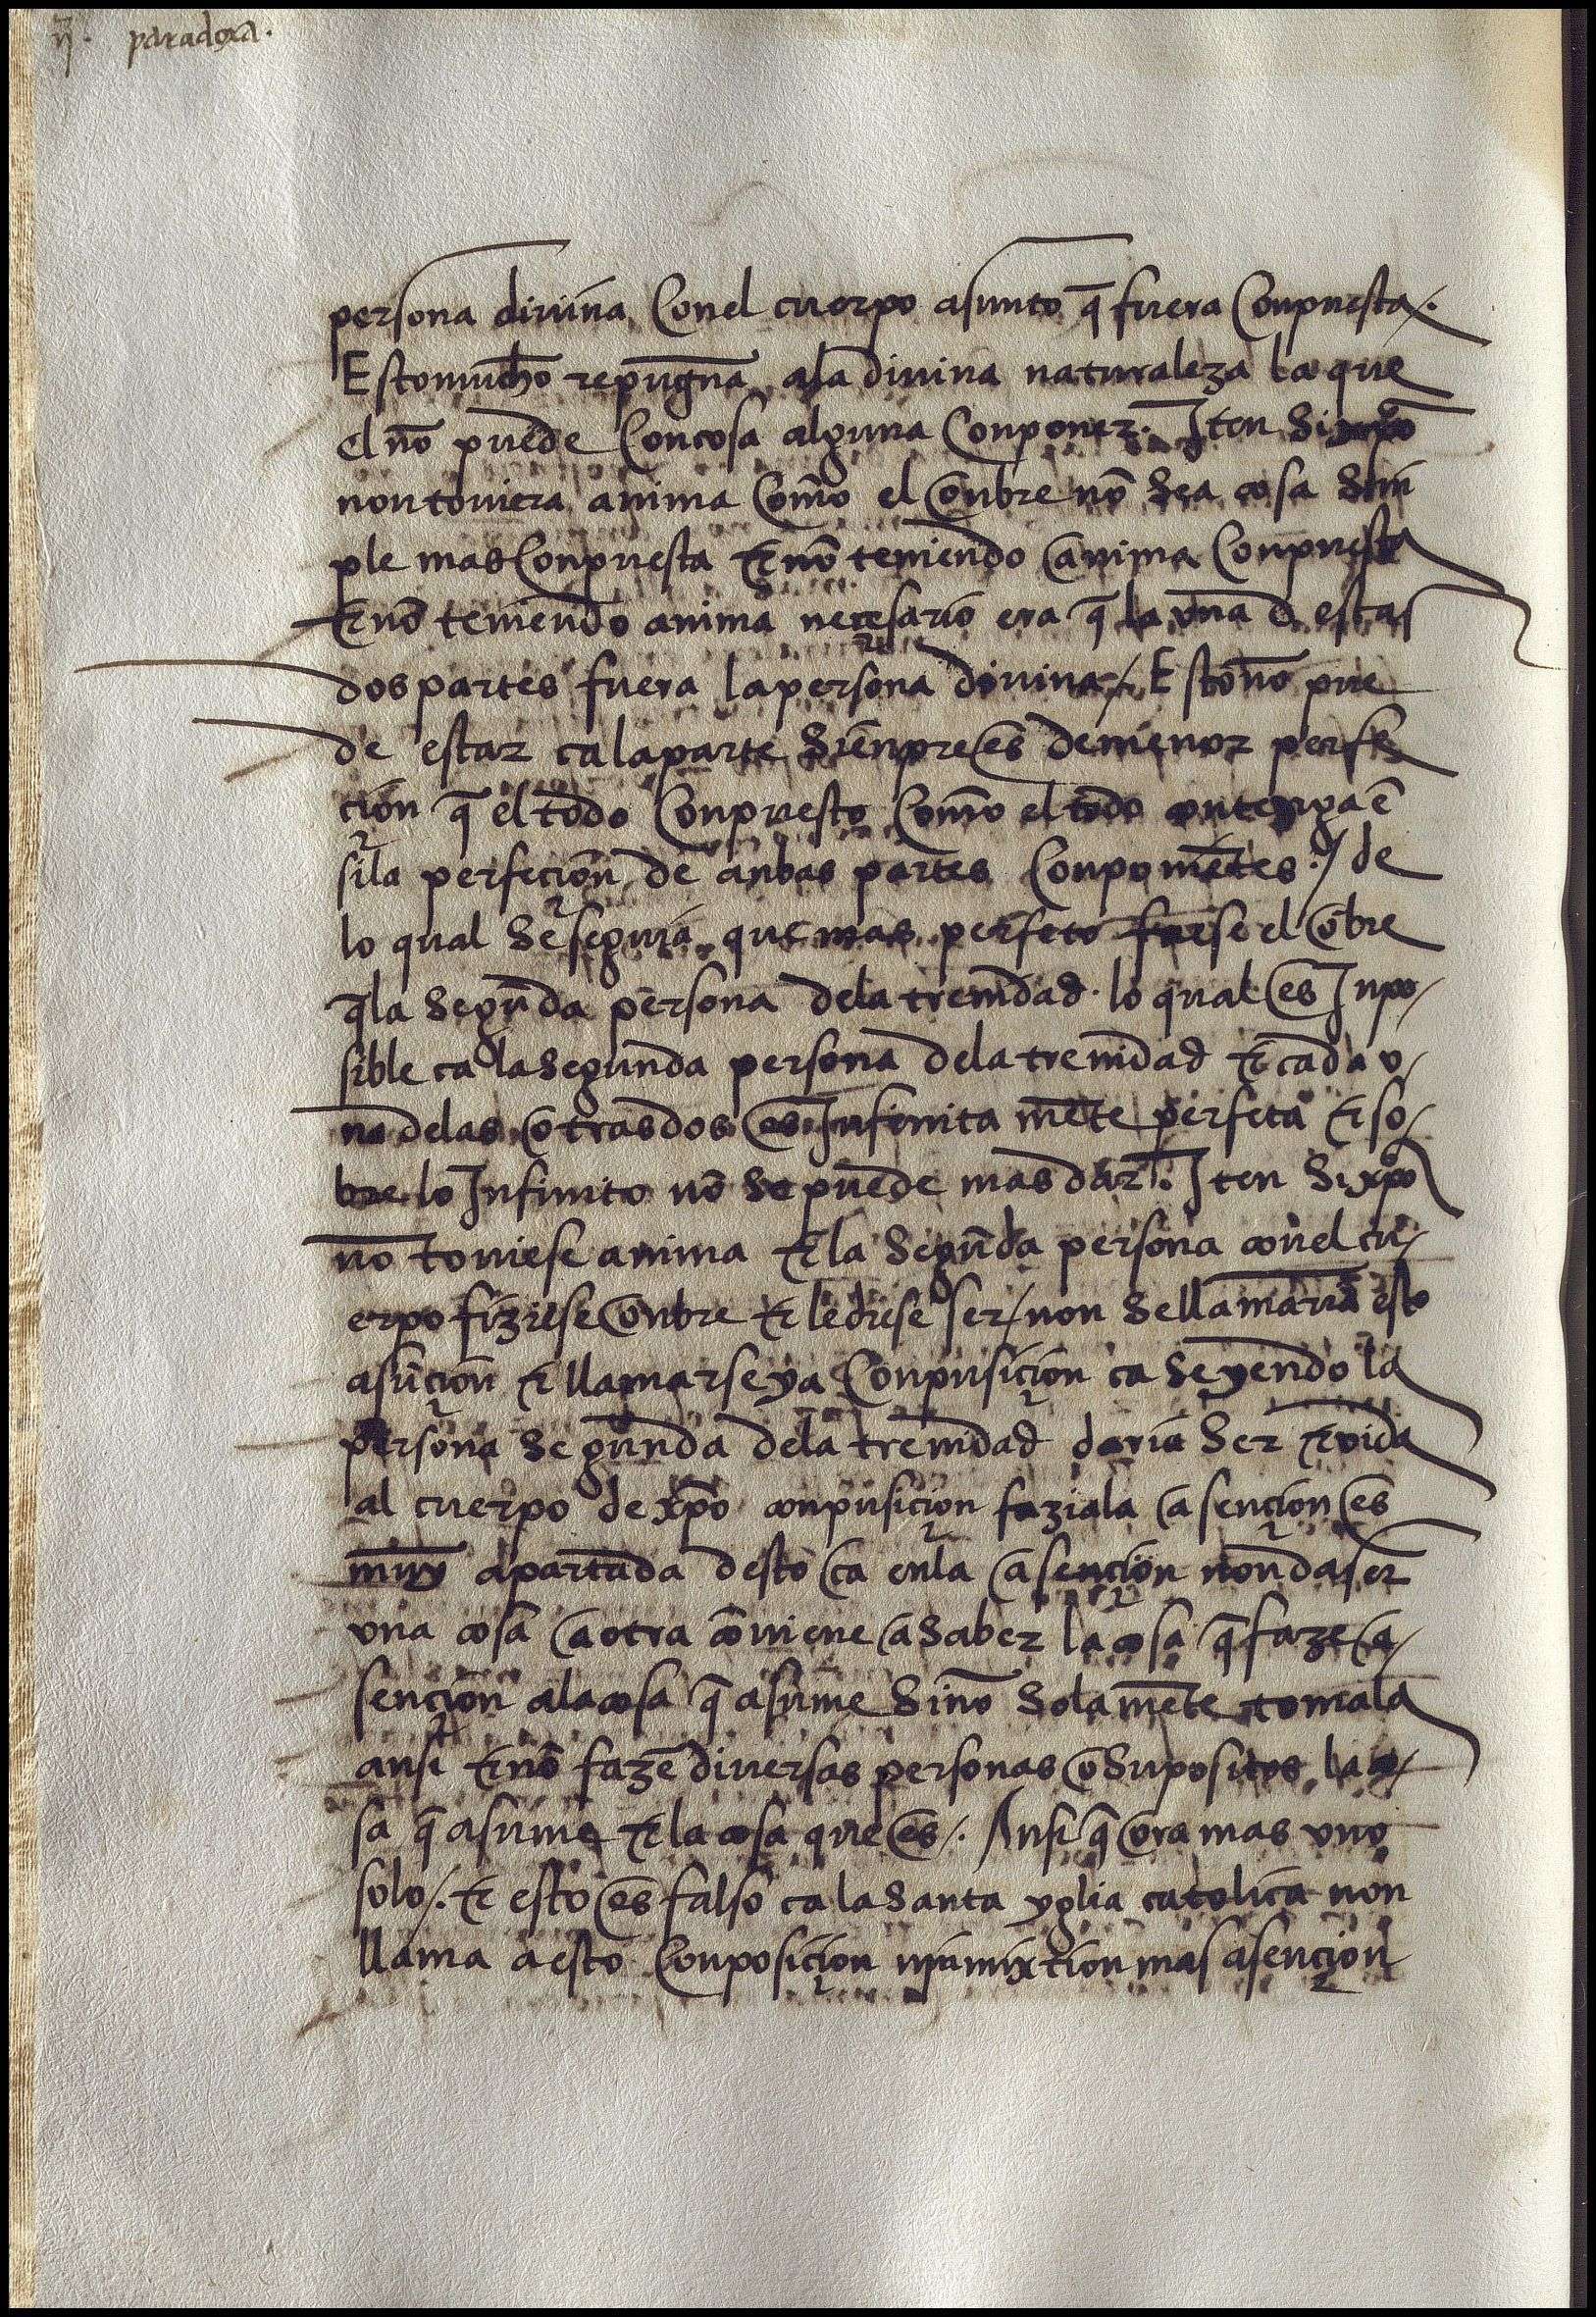 ij. paradoxa.
persona diuina Conel cuerpo asunto q̃ fuera Conpuesta/.
Esto mucho repugna ala diuina naturaleza la que
el nõ puede Concosa alguna Conponer. Iten Si xp̃o
non touiera anima Com̃o el onbre nõ Sea cosa Sin
ple mas Conpuesta ⁊ nõ teniendo anima Conpuesta
⁊ nõ teniendo anima neçesario era q̃ la vna d estas
dos partes fuera la persona diuina/. Esto nõ pue
de estar ca la parte Sienpre es de menor perfe
çion q̃ el todo Conpuesto Com̃o el todo contenga ẽ
si la perfeçion de anbas partes Conponẽtes ./ de
lo qual Se seguiria que mas perfeto fuese el õbre
q̃ la Segunda persona dela trenidad. lo qual es Inpo/
sible ca la Segunda persona dela trenidad ⁊ cada v/
na delas otras dos es Infinita mẽte perfeta ⁊ so/
bre lo Infinito nõ Se puede mas dar. Iten Si xp̃o
nõ touiese anima ⁊ la Segũda persona conel cu/
erpo fiziese onbre ⁊ le diese ser/ non Se llamaria esto
asũçion ⁊ llamarse ya Conpusiçion ca Seyendo la
persona Segunda dela trenidad daria Ser ⁊ vida
al cuerpo de xp̃o conpusiçion faziala asençion es
muy apartada desto ca enla asençion non da ser
vna cosa a otra cõuiene a Saber la cosa q̃ faze a/
sençion ala cosa q̃ asume Sinõ Sola mẽte tomala
ansi ⁊ nõ faze diuersas personas o Supositos la co/
sa q̃ asume ⁊ la cosa que es/. Ansi q̃ era mas vno
solo/. ⁊ esto es falso ca la Santa yglia catolica non
llama a esto Conposiçion nin mixtion mas asençion